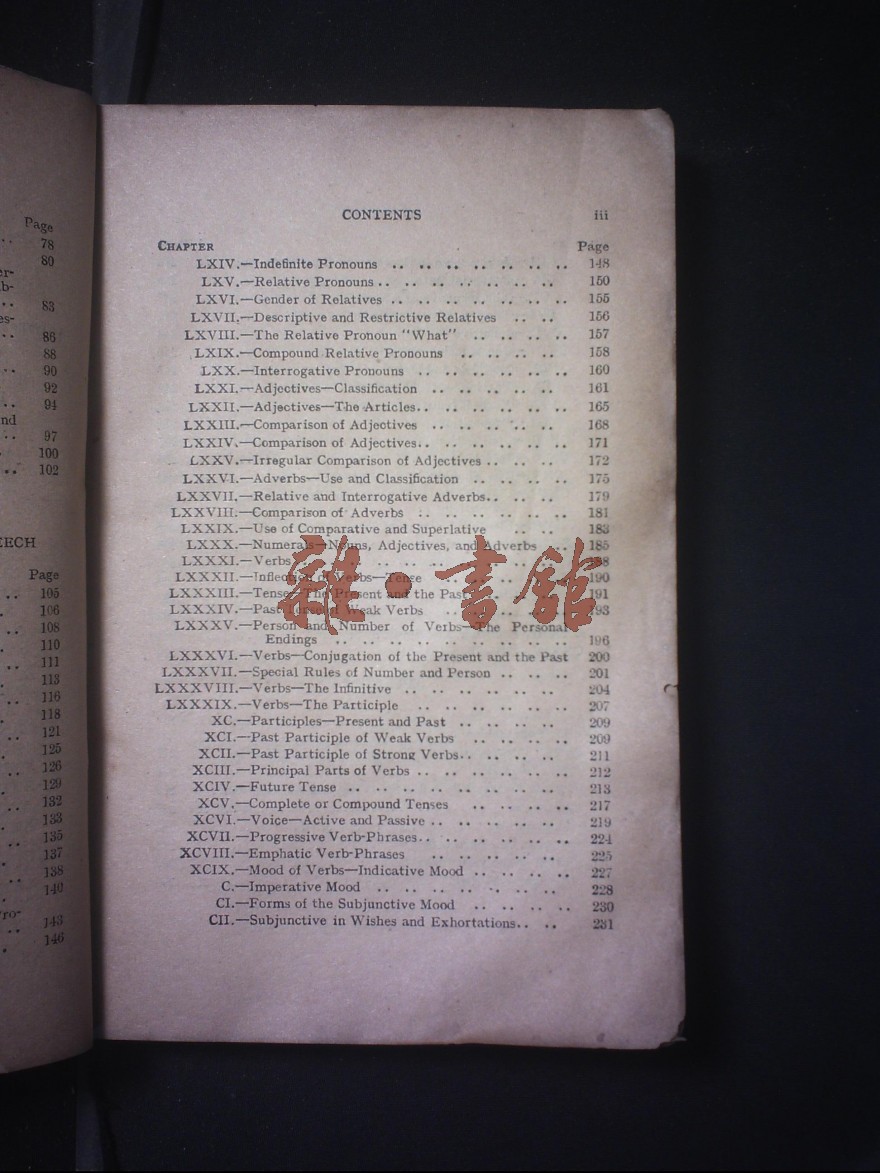 Page
.. 78
80
er-
b-
.. 83
es-
.. 86
88
.. 90
92
.. 94
nd
.. 97
. 100
.. 102
EECH
Page
.. 105
. 106
.. 108
. 110
.. 111
. 113
.. 116
. 118
.. 121
. 125
.. 126
. 129
.. 132
. 133
.. 135
. 137
.. 138
. 140
ro-
. 143
.. 146
CONTENTS iii
CHAPTER Page
LXIV.—Indefinite Pronouns .. .. .. .. .. .. .. 148
LXV.—Relative Pronouns .. .. .. .. .. .. .. 150
LXVI.—Gender of Relatives .. .. .. .. .. .. .. 155
LXVII.—Descriptive and Restrictive Relatives .. .. 156
LXVIII.—The Relative Pronoun "What" .. .. .. .. 157
LXIX.—Compound Relative Pronouns .. .. .. .. 158
LXX.—Interrogative Pronouns .. .. .. .. .. .. 160
LXXI.—Adjectives—Classification .. .. .. .. .. 161
LXXII.—Adjectives—The Articles.. .. .. .. .. .. 165
LXXIII.—Comparison of Adjectives .. .. .. .. .. 168
LXXIV.—Comparison of Adjectives.. .. .. .. .. .. 171
LXXV.—Irregular Comparison of Adjectives .. .. .. 172
LXXVI.—Adverbs—Use and Classification .. .. .. .. 175
LXXVII.—Relative and Interrogative Adverbs.. .. .. 179
LXXVIII.—Comparison of Adverbs .. .. .. .. .. .. 181
LXXIX.—Use of Comparative and Superlative .. .. 183
LXXX.—Numerals—Nouns, Adjectives, and Adverbs .. 185
LXXXI.—Verbs .. .. .. .. .. .. .. 188
LXXXII.—Inflection of Verbs—Tense .. .. .. .. 190
LXXXIII.—Tense—The Present and the Past .. .. .. 191
LXXXIV.—Past Tense of Weak Verbs .. .. .. .. 193
LXXXV.—Person and Number of Verbs—The Personal
Endings .. .. .. .. .. .. .. .. .. 196
LXXXVI.—Verbs—Conjugation of the Present and the Past 200
LXXXVII.—Special Rules of Number and Person .. .. .. 201
LXXXVIII.—Verbs—The Infinitive .. .. .. .. .. .. 204
LXXXIX.—Verbs—The Participle .. .. .. .. .. .. 207
XC.—Participles—Present and Past .. .. .. .. 209
XCI.—Past Participle of Weak Verbs .. .. .. .. 209
XCII.—Past Participle of Strong Verbs.. .. .. .. 211
XCIII.—Principal Parts of Verbs .. .. .. .. .. .. 212
XCIV.—Future Tense .. .. .. .. .. .. .. .. 213
XCV.—Complete or Compound Tenses .. .. .. .. 217
XCVI.—Voice—Active and Passive .. .. .. .. .. 219
XCVII.—Progressive Verb-Phrases.. .. .. .. .. .. 224
XCVIII.—Emphatic Verb-Phrases .. .. .. .. .. 225
XCIX.—Mood of Verbs—Indicative Mood .. .. .. .. 227
C.—Imperative Mood .. .. .. .. .. .. .. 228
CI.—Forms of the Subjunctive Mood .. .. .. .. 230
CII.—Subjunctive in Wishes and Exhortations.. .. 231
雜·書館